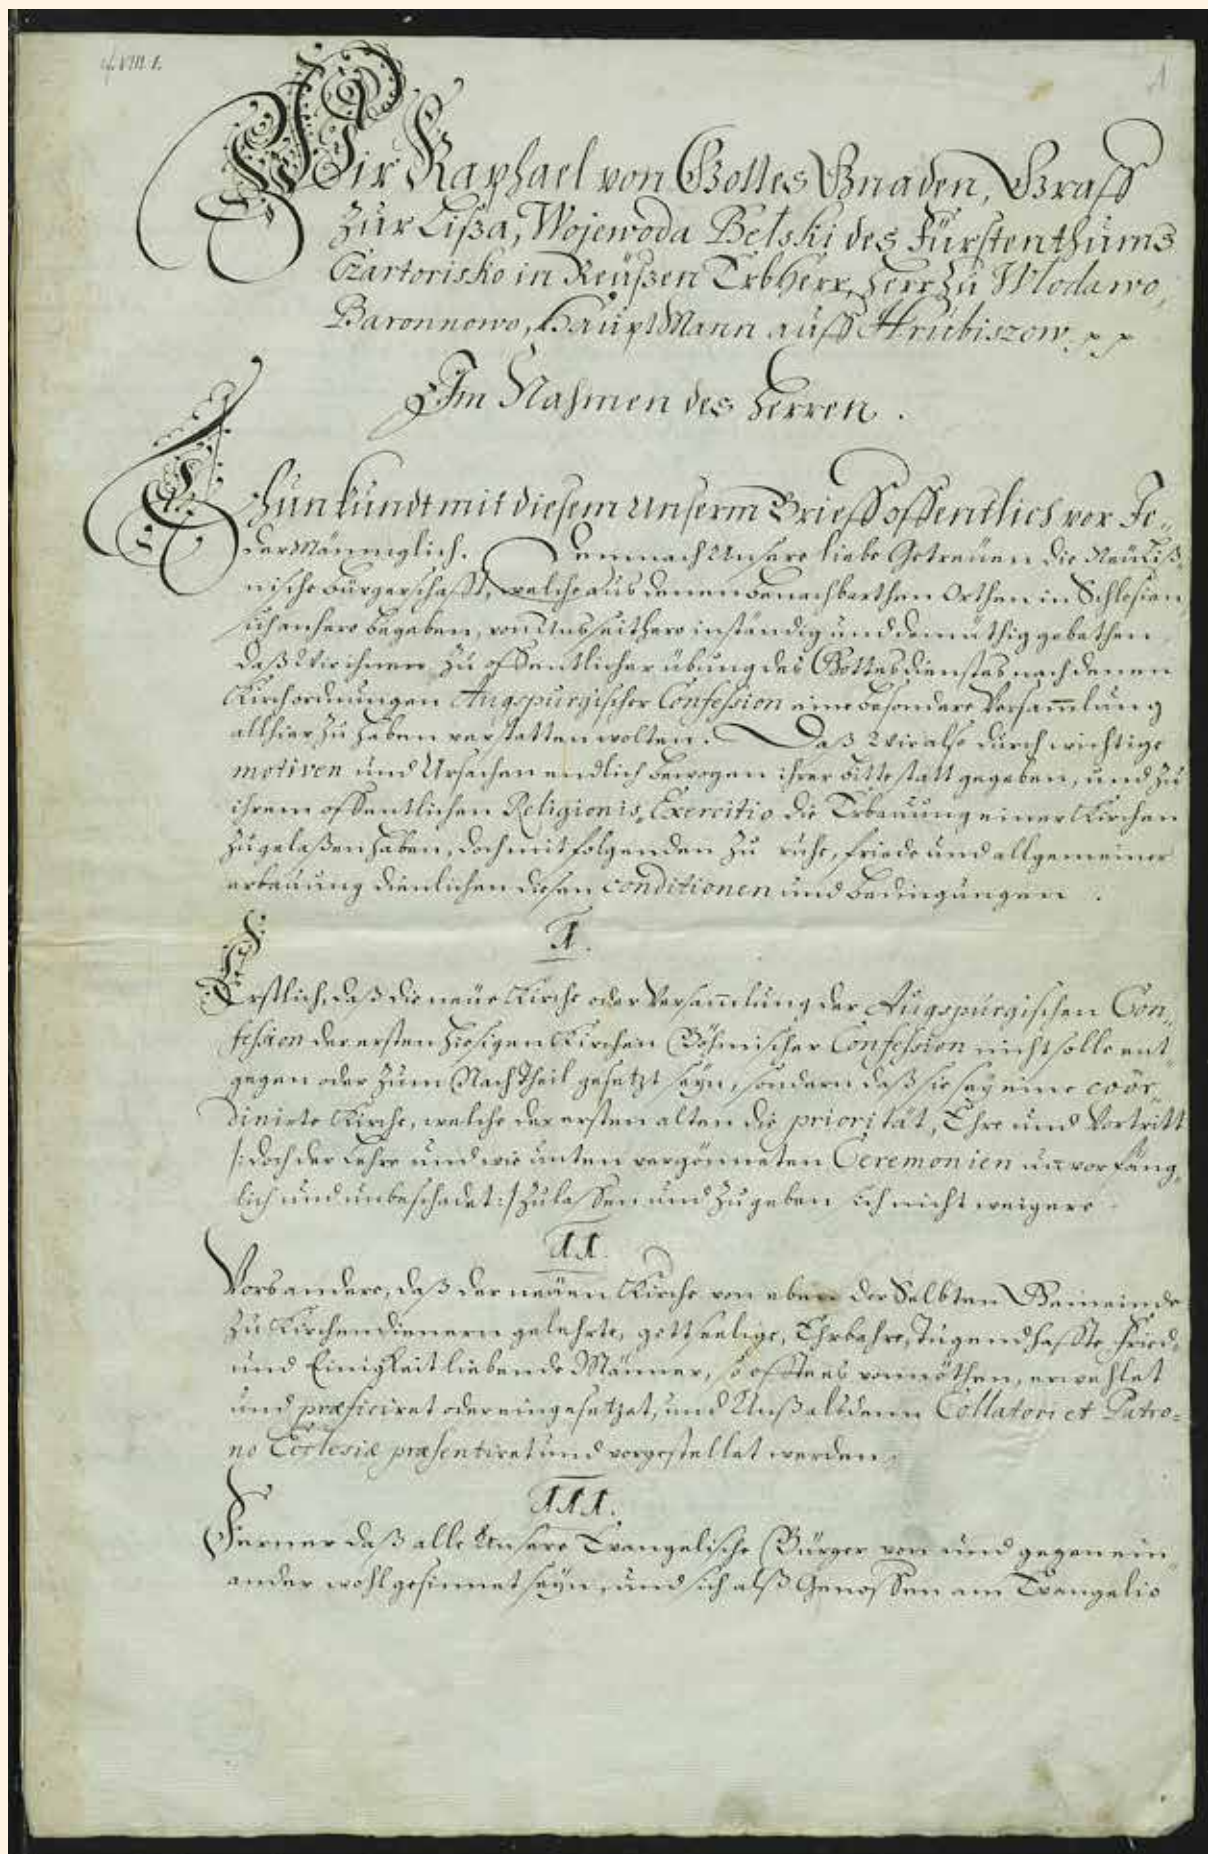 cf. VIII 1.
1
Wir Raphael von Gottes Gnaden, Graff
zur Lißa, Wojewoda Belski des Fürstenthums
Czartorisko in Reüßen ErbHerr, Herr zu Wlodawo,
Baronnowo, HauptMann auff Hrubiszow. pp
Im Nahmen des Herren.
Thun kundt mit diesem unserm Brieff offentlich vor Je-
derMänniglich. Demnach Unsere liebe Getreuen die NeüLiß-
nische Bürgerschafft, welche aus denen benachbarthen Orthen in Schlesien
sich anhero begeben, von Uns seithero inständig und demüthig gebethen
daß Wir ihnen zu offentlicher übung des Gottesdienstes nach denen
Kirchordnungen Augspurgischer Confession eine besondere Versam̄lung
allhier zu haben verstatten wolten. Daß Wir also durch wichtige
motiven und Ursachen endlich bewogen ihrer bitte statt gegeben, und zu
ihrem offentlichen Religionis Exercitio die Erbauung einer Kirchen
zugelaßen haben, doch mit folgenden zu ruhe, friede und allgemeiner
erbauung dienlichen diesen conditionen und bedingungen.
I.
Erstlich, daß die neüe Kirche oder Versam̄lung der Augspurgischen Con-
fession der ersten hiesigen Kirchen Böhmischer Confession nicht solle ent-
gegen oder zum NachTheil gesetzt seyn, sondern daß sie sey eine coör-
dinirte Kirche, welche der ersten alten die priorität, Ehre und Vortritt
/: doch der Lehre und wie unten vergönneten Ceremonien un̄vorfäng-
lich und unbeschadet :/ zulassen und zugeben sich nicht weigere
II.
Vors andere, daß der neüen Kirche von eben derselbten Gemeinde
zu Kirchendienern gelehrte, gottseelige, Ehrbahre, Tugendhaffte Fried-
und Einigkeit liebende Männer, so offt es vonnöthen, erwehlet
und præficiret oder eingesetzet, und Unß alsdenn Collatori et Patro-
no Ecclesiæ præsentiret und vorgestellet werden.
III.
Ferner daß alle Unsere Evangelische Bürger von und gegen ein-
ander wohlgesinnet seyn, und sich alß Genossen am Evangelio